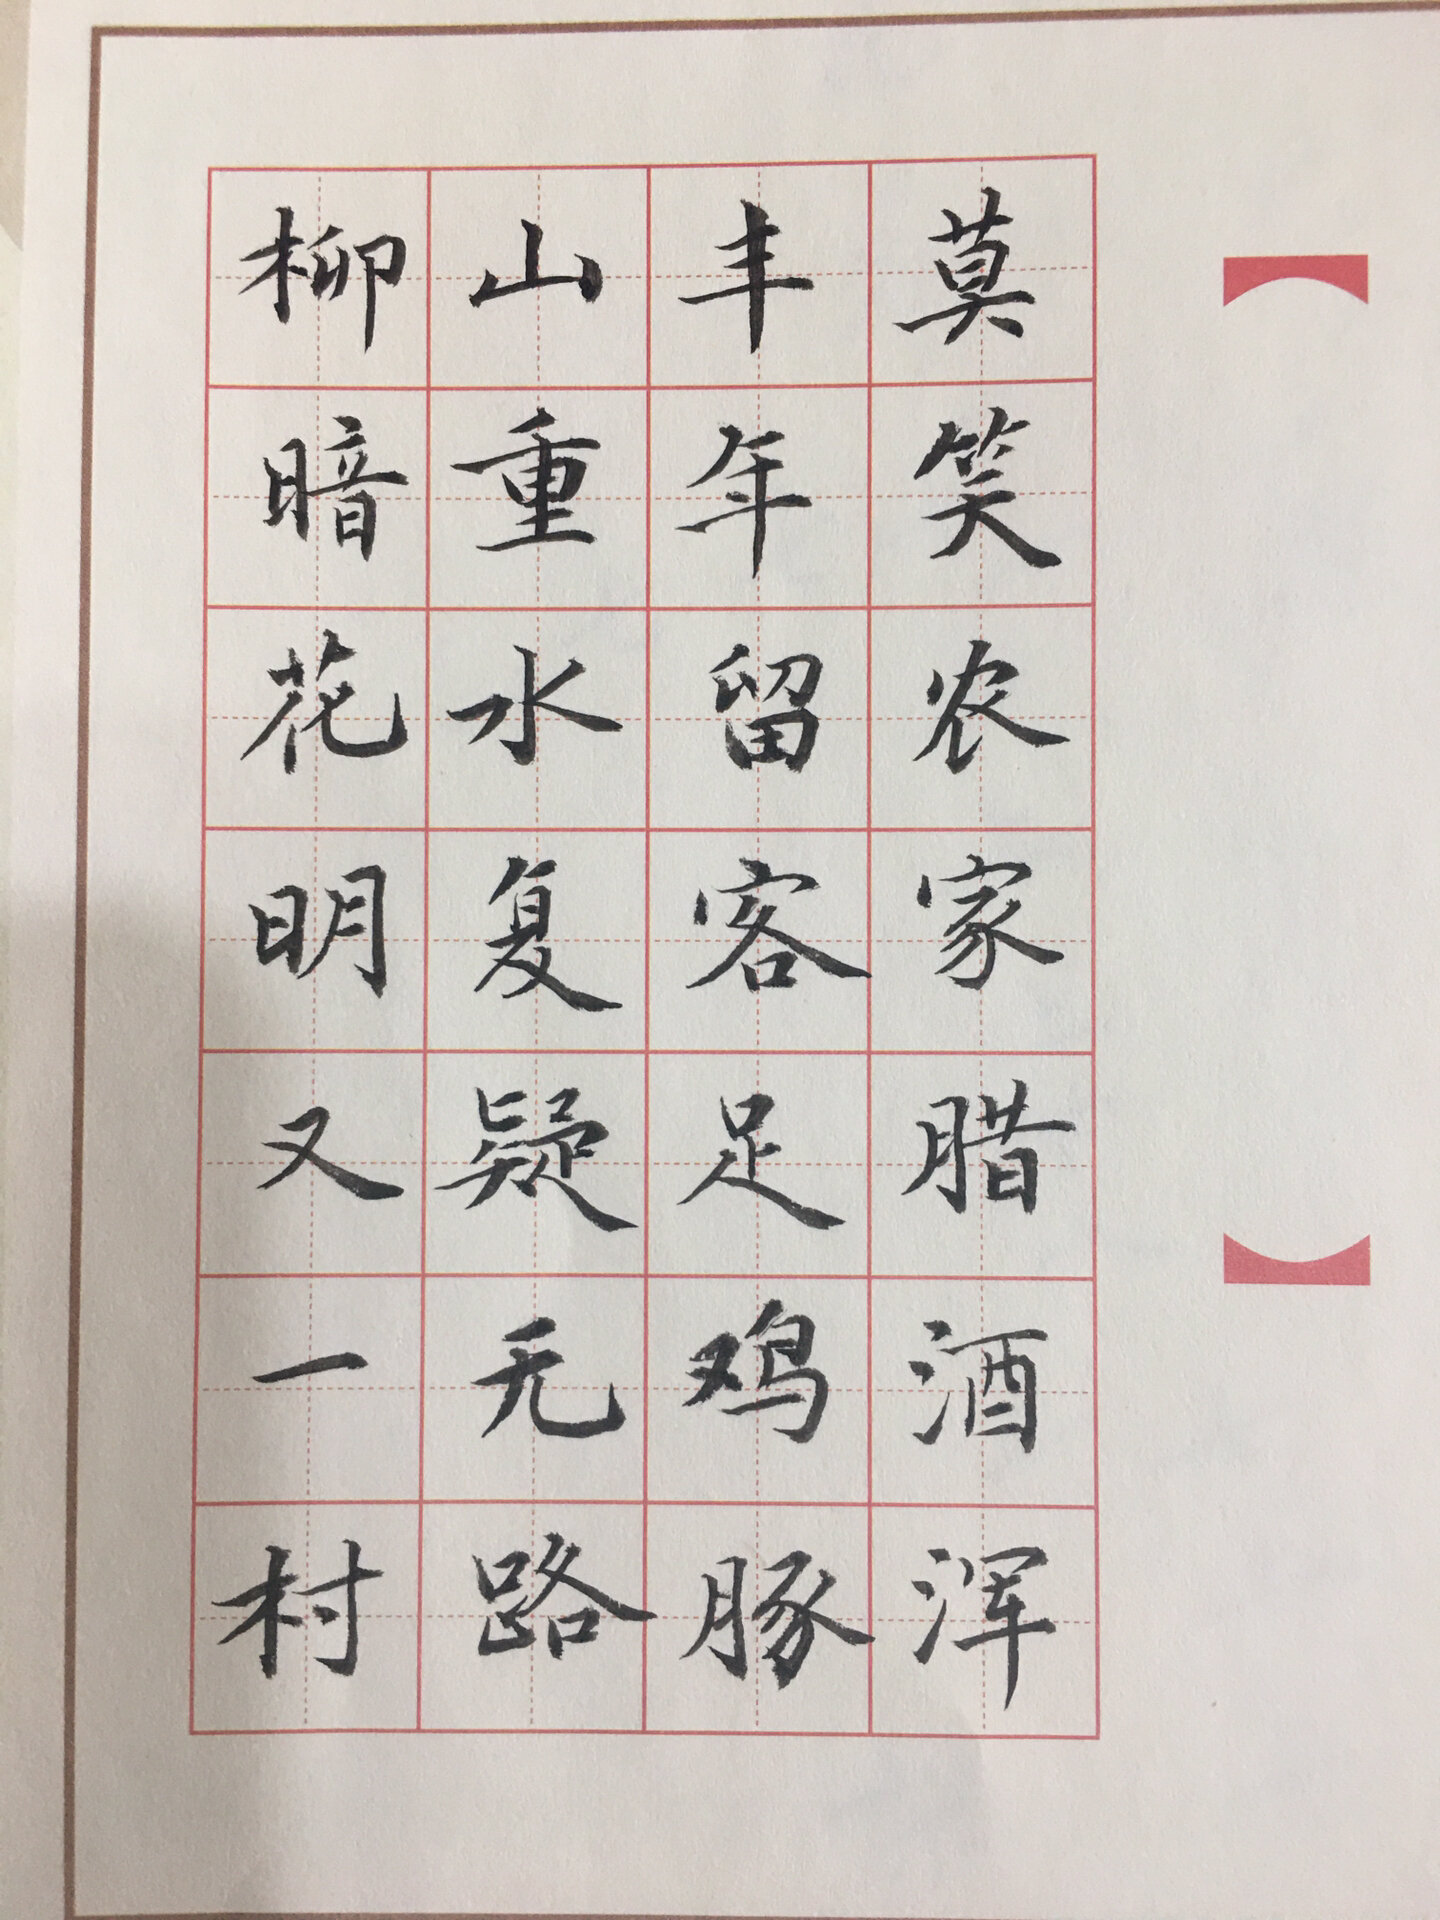 莫笑农家腊酒浑
丰年留客足鸡豚
山重水复疑无路
柳暗花明又一村